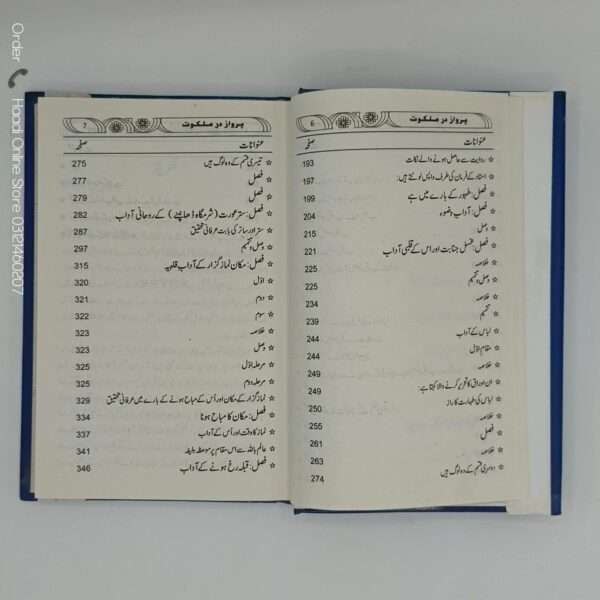 Order Hoodi Online Store 03124460207
پرواز در ملکوت 6
عنوانات صفحہ
☆ روایت سے حاصل ہونے والے نکات 193
☆ استاد کے فرمان کی طرف واپس لوٹتے ہیں: 197
☆ فصل: طہور کے بارے میں ہے 199
☆ فصل: آداب وضوء 204
☆ وصل 215
☆ فصل: غسل جنابت اور اس کے قلبی آداب 221
☆ خلاصہ 225
☆ وصل و تتمیم 225
☆ خلاصہ 234
☆ تتمیم 239
☆ لباس کے آداب 244
☆ مقام اوّل 244
☆ خلاصہ 249
☆ ان اوراق کا تحریر کرنے والا کہتا ہے: 249
☆ لباس کی طہارت کا راز 250
☆ خلاصہ 255
☆ فصل 261
☆ خلاصہ 263
☆ دوسری قسم کے وہ لوگ ہیں 274
پرواز در ملکوت 7
عنوانات صفحہ
☆ تیسری قسم کے وہ لوگ ہیں 275
☆ فصل 277
☆ فصل 279
☆ فصل: ستر عورت (شرمگاہ ڈھانپنے) کے روحانی آداب 282
☆ ستر اور ساتر کی بابت عرفانی تحقیق 287
☆ وصل و تتمیم 297
☆ فصل: مکان نماز گزار کے آداب قلبیہ 315
☆ اوّل 320
☆ دوم 321
☆ سوم 322
☆ خلاصہ 323
☆ وصل 323
☆ مرحلہ اوّل 325
☆ مرحلہ دوم 325
☆ نماز گزار کے مکان اور اُس کے مباح ہونے کے بارے میں عرفانی تحقیق 329
☆ فصل: مکان کا مباح ہونا 334
☆ نماز کا وقت اور اُس کے آداب 337
☆ عالم باللہ سے اس مقام پر موعظہ بلیغہ 341
☆ فصل: قبلہ رخ ہونے کے آداب 346